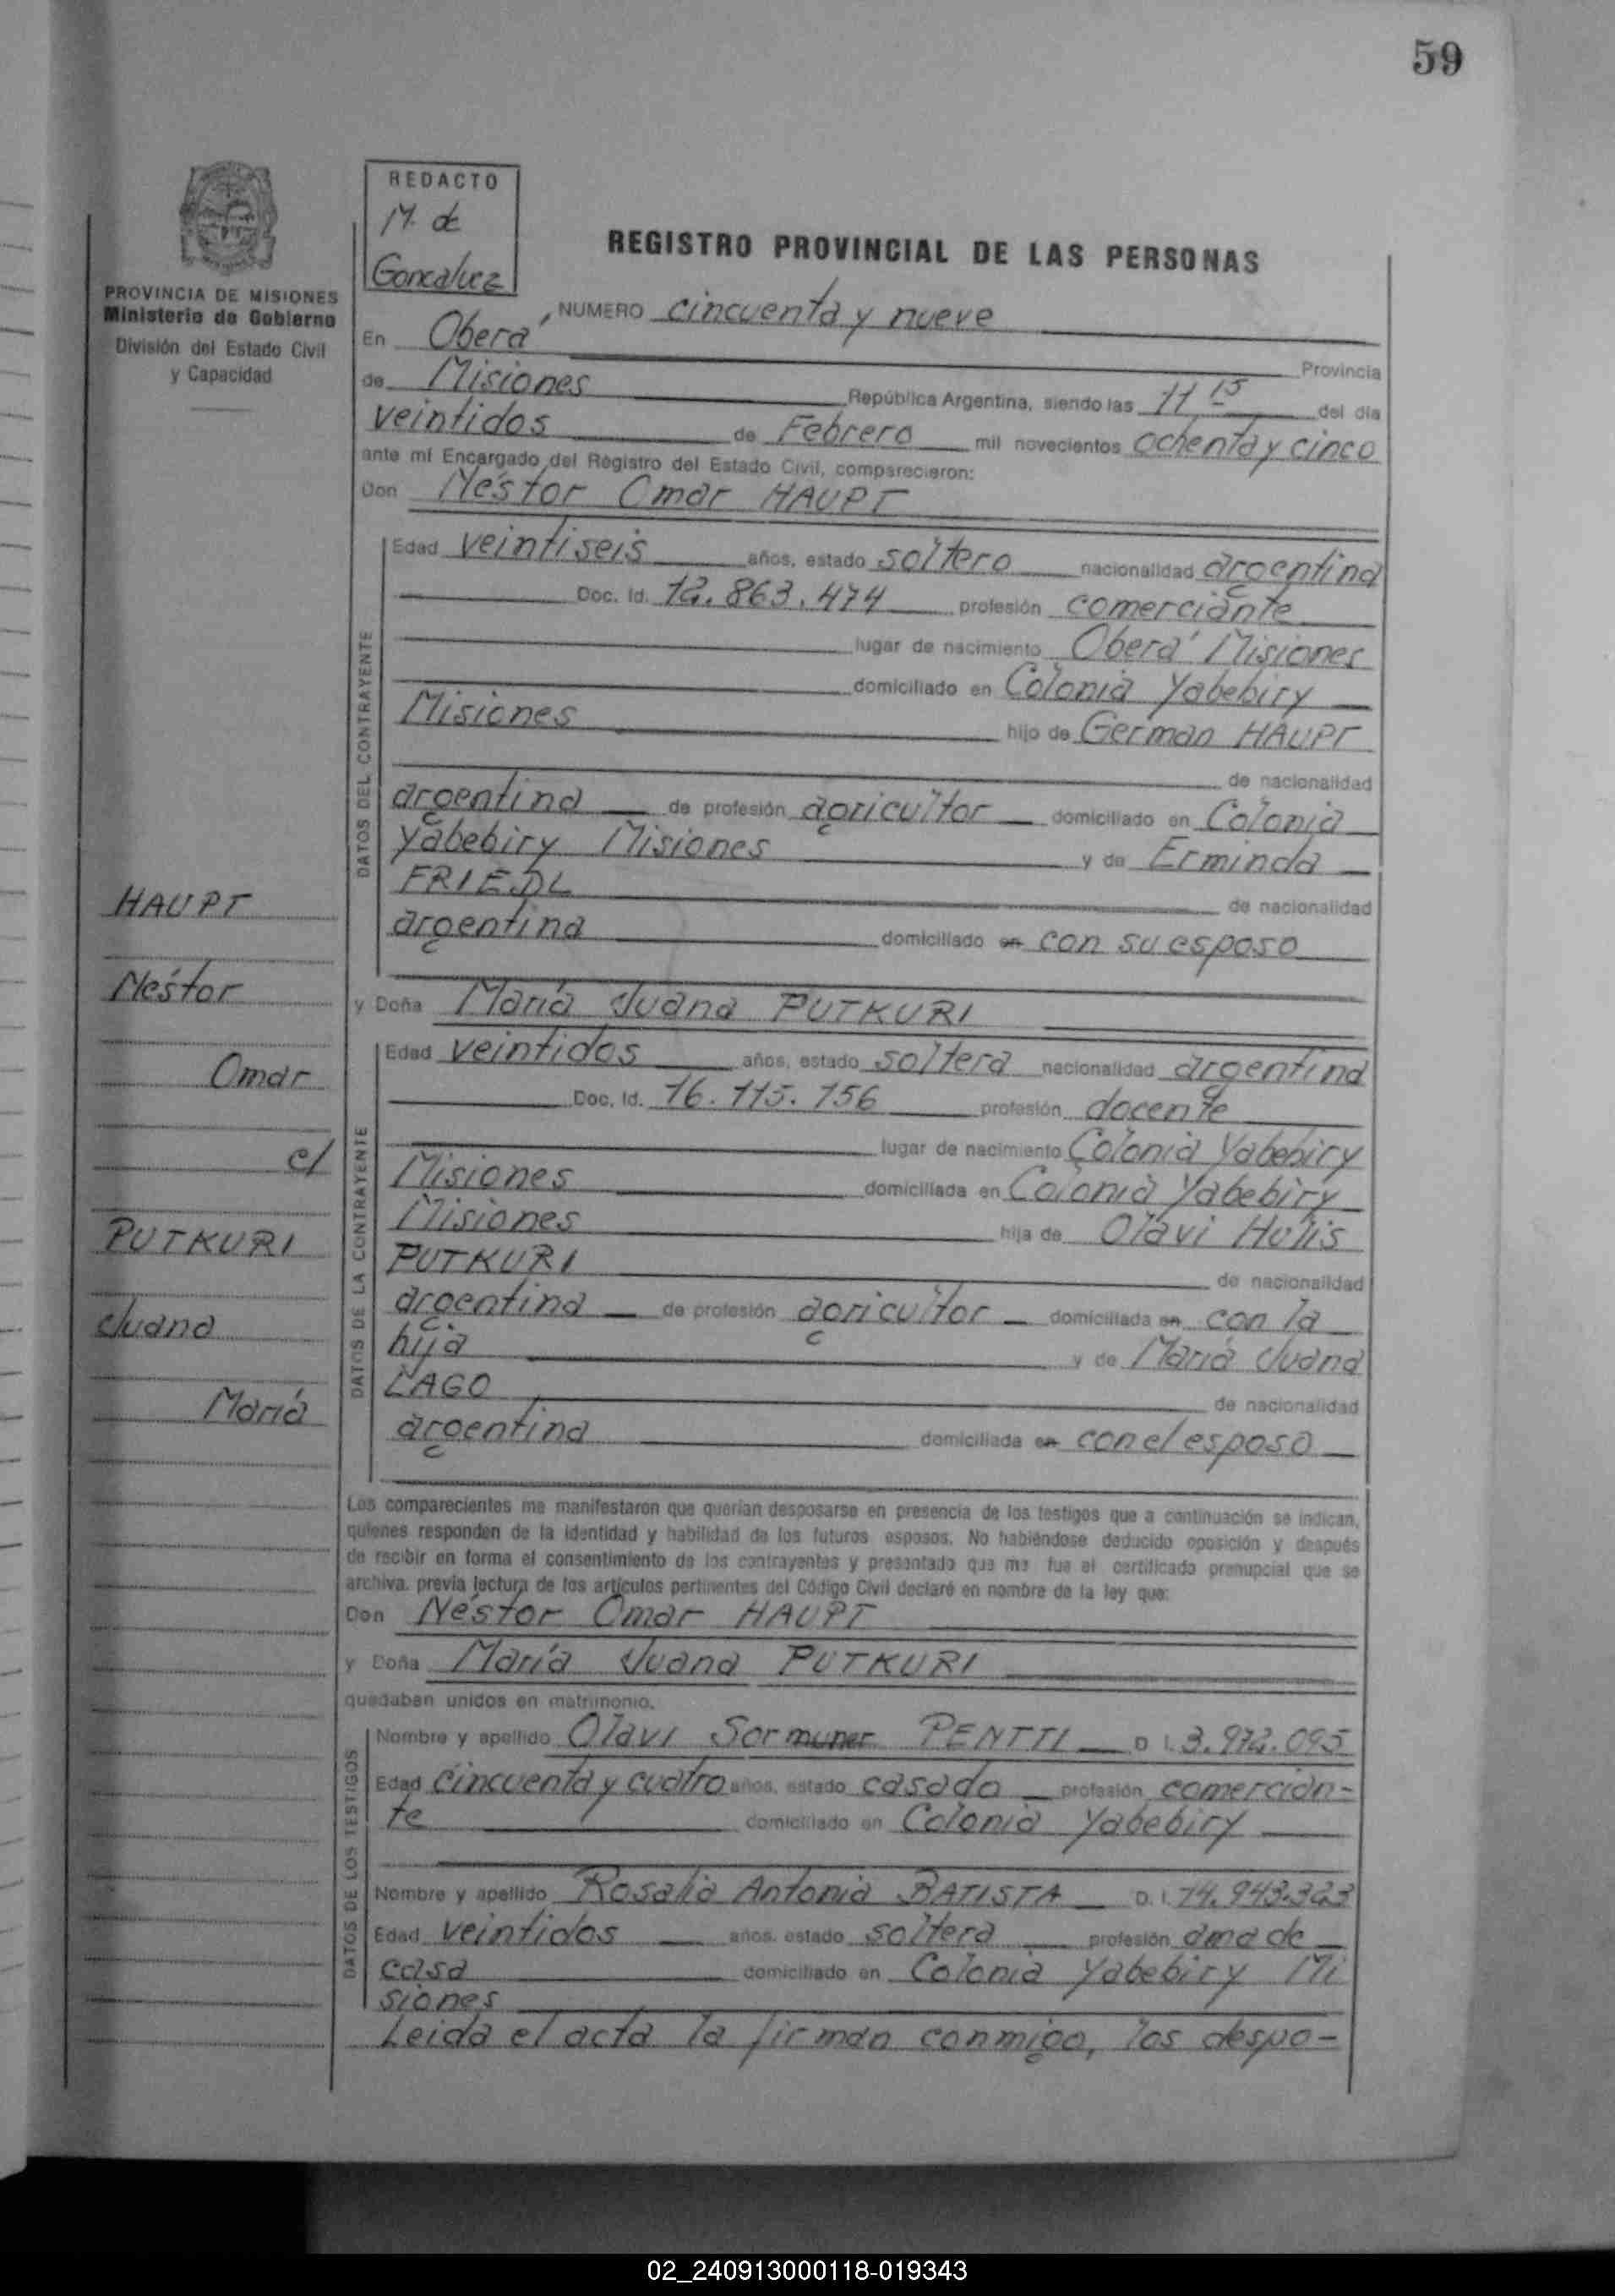 59
REDACTO
M. de
Goncalvez
PROVINCIA DE MISIONES
Ministerio de Gobierno
División del Estado Civil
y Capacidad
REGISTRO PROVINCIAL DE LAS PERSONAS
NUMERO cincuenta y nueve
En Oberá Provincia
de Misiones República Argentina, siendo las 11 15 del día
veintidos de Febrero mil novecientos ochenta y cinco
ante mí Encargado del Registro del Estado Civil, comparecieron:
Don Néstor Omar HAUPT
DATOS DEL CONTRAYENTE
Edad veintiseis años, estado soltero nacionalidad argentina
Doc. Id. 12.863.474 profesión comerciante
lugar de nacimiento Oberá Misiones
domiciliado en Colonia Yabebiry
Misiones hijo de German HAUPT
de nacionalidad
argentina de profesión agricultor domiciliado en Colonia
Yabebiry Misiones y de Erminda
FRIEDL de nacionalidad
argentina domiciliado en con su esposo
y Doña María Juana PUTKURI
DATOS DE LA CONTRAYENTE
Edad veintidos años, estado soltera nacionalidad argentina
Doc. Id. 16.115.156 profesión docente
lugar de nacimiento Colonia Yabebiry
Misiones domiciliada en Colonia Yabebiry
Misiones hija de Olavi
PUTKURI de nacionalidad
argentina de profesión agricultor domiciliada en con la
hija y de María Juana
LAGO de nacionalidad
argentina domiciliada en con el esposo
HAUPT
Néstor
Omar
c/
PUTKURI
Juana
María
Los comparecientes me manifestaron que querían desposarse en presencia de los testigos que a continuación se indican,
quienes responden de la identidad y habilidad de los futuros esposos. No habiéndose deducido oposición y después
de recibir en forma el consentimiento de los contrayentes y presentado que me fue el certificado prenupcial que se
archiva, previa lectura de los artículos pertinentes del Código Civil declaré en nombre de la ley que:
Don Néstor Omar HAUPT
y Doña María Juana PUTKURI
quedaban unidos en matrimonio.
DATOS DE LOS TESTIGOS
Nombre y apellido Olavi Sormuner PENTTI D. I. 3.972.095
Edad cincuenta y cuatro años, estado casado profesión comercian-
te domiciliado en Colonia Yabebiry
Nombre y apellido Rosalia Antonia BATISTA D. I. 14.943.323
Edad veintidos años, estado soltera profesión ama de
casa domiciliado en Colonia Yabebiry Mi
siones
Leida el acta la firman conmigo, los despo-
02_240913000118-019343